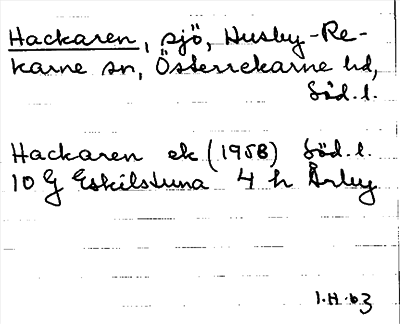 Hackaren, sjö, Husby-Re-
karne sn, Österrekarne hd,
Söd. l.
Hackaren ek (1958) Söd. l.
10 G Eskilstuna 4 h Årby
1.H.63